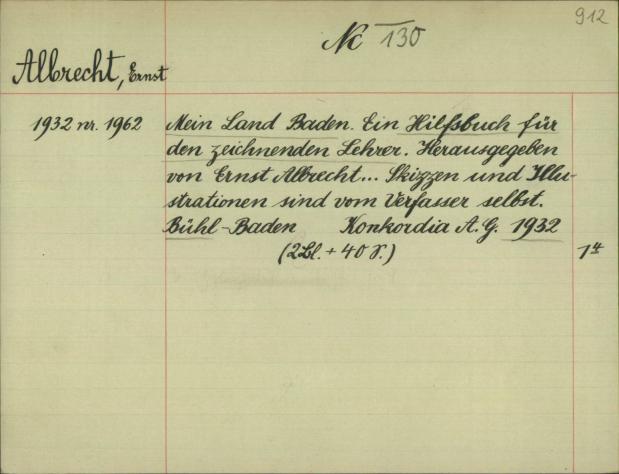 912
Nc 130
Albrecht, Ernst
1932 nr. 1962 Mein Land Baden. Ein Hilfsbuch für
den zeichnenden Lehrer. Herausgegeben
von Ernst Albrecht... Skizzen und Illu-
strationen sind vom Verfasser selbst.
Bühl-Baden Konkordia A. G. 1932
(2 Bl. + 40 S.) 1 4